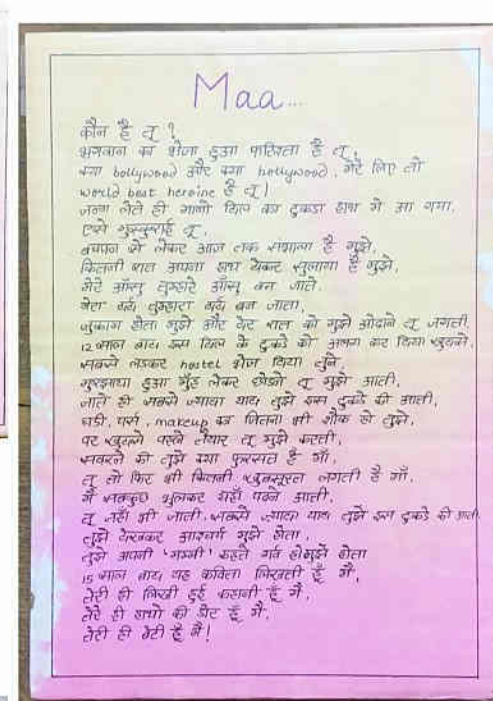 Maa...
कौन है तू ?
भगवान का भेजा हुआ फरिश्ता है तू,
क्या bollywood और क्या hollywood, मेरे लिए तो
world best heroine है तू !
जन्म लेते ही मानो दिल का टुकडा हाथ में आ गया,
ऐसे मुस्कुराई तू,
बचपन से लेकर आज तक संभाला है मुझे,
कितनी रात अपना हाथ देकर सुलाया है मुझे,
मेरे आँसू तुम्हारे आँसू बन जाते.
मेरा दर्द तुम्हारा दर्द बन जाता,
जुकाम होता मुझे और देर रात को मुझे ओढाने तू जगती.
12 साल बाद इस दिल के टुकडे को अलग कर दिया खुदसे,
सबसे लडकर hostel भेज दिया तुने,
मुरझाया हुआ मुँह लेकर छोडने तू मुझे आती,
जाते ही सबसे ज्यादा याद तुझे इस टुकडे की आती,
घडी, पर्स, makeup का जितना भी शौक हो तुझे,
पर खुदसे पहले तैयार तू मुझे करती,
सवरने की तुझे क्या फुरसत है माँ,
तू तो फिर भी कितनी खुबसूरत लगती है माँ,
मैं सबकुछ भुलकर यहाँ पढने आती,
तू जहाँ भी जाती, सबसे ज्यादा याद तुझे इस टुकडे की आती
तुझे देखकर आश्चर्य मुझे होता,
तुझे अपनी 'मम्मी' कहते गर्व होमुझे होता
15 साल बाद यह कविता लिखती हूँ मैं,
तेरी ही लिखी हुई कहानी हूँ मैं,
तेरे ही हाथो की हूँ मैं,
तेरी ही बेटी हूँ मैं !